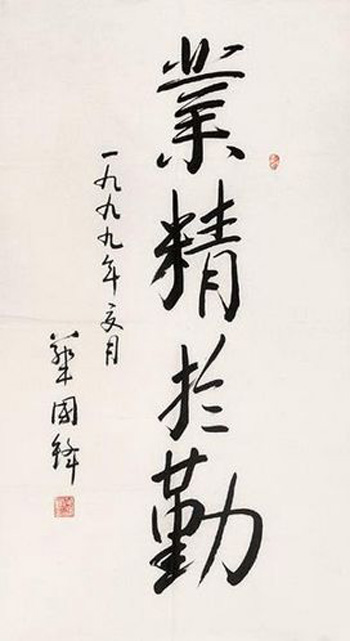 業精於勤
一九九九年五月
華國鋒